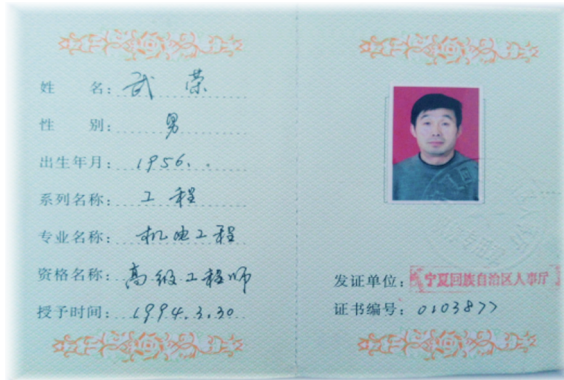 姓 名: 武 荣
性 别: 男
出生年月: 1956..
系列名称: 工程
专业名称: 机电工程
资格名称: 高级工程师
授予时间: 1994.3.30
发证单位: 宁夏回族自治区人事厅
证书编号: 0103877